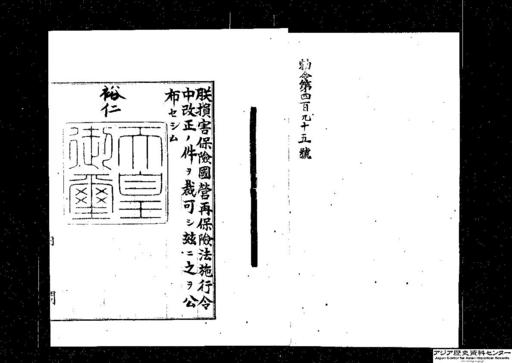 勅令第四百九十五號
朕損害保險國營再保險法施行令
中改正ノ件ヲ裁可シ茲ニ之ヲ公
布セシム
裕仁
天皇
御璽
アジア歴史資料センター
Japan Center for Asian Historical Records